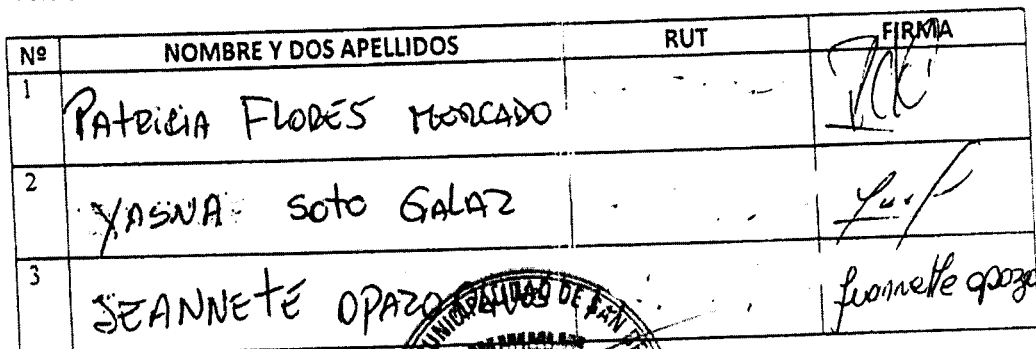 Nº NOMBRE Y DOS APELLIDOS RUT FIRMA
1 PATRICIA FLORES MERCADO
2 YASNA SOTO GALAZ
3 JEANNETE OPAZO Jeannette Opazo
MUNICIPALIDAD DE SAN